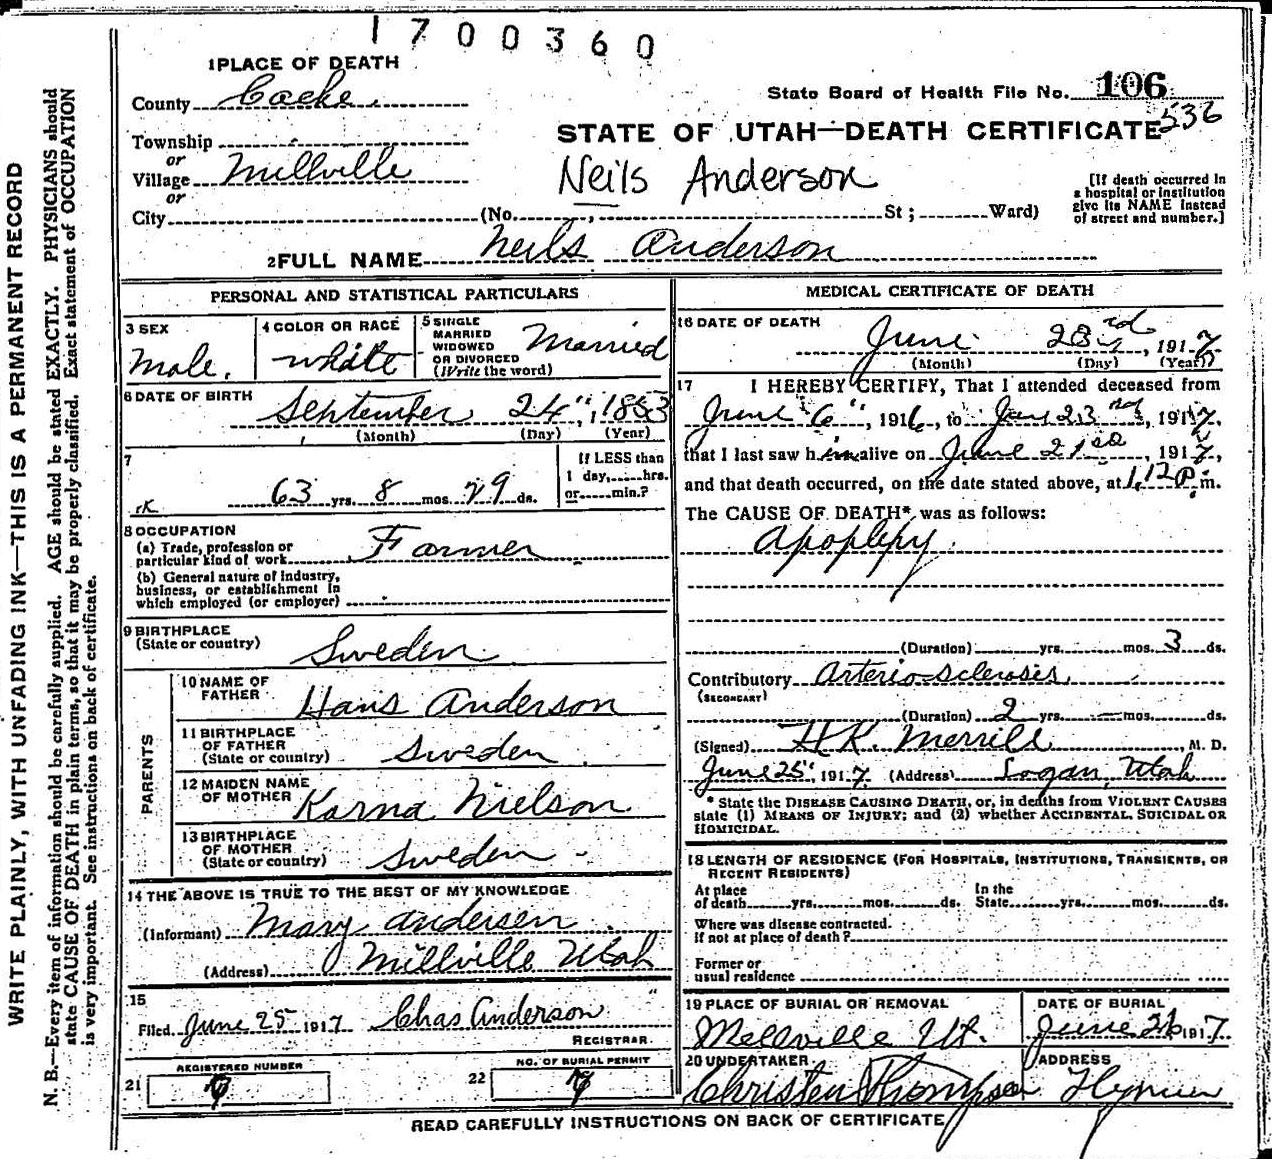 1700360
1 PLACE OF DEATH
County Cache
State Board of Health File No. 106
536
Township
or
Village Millville
or
City (No. , St; Ward)
STATE OF UTAH—DEATH CERTIFICATE
Neils Anderson
[If death occurred in
a hospital or institution
give its NAME instead
of street and number.]
2 FULL NAME Neils Anderson
PERSONAL AND STATISTICAL PARTICULARS
3 SEX
Male.
4 COLOR OR RACE
white
5 SINGLE
MARRIED
WIDOWED
OR DIVORCED
(Write the word)
Married
6 DATE OF BIRTH
September 24", 1853
(Month) (Day) (Year)
7
63 yrs. 8 mos. 29 ds.
If LESS than
1 day, hrs.
or min.?
8 OCCUPATION
(a) Trade, profession or
particular kind of work Farmer
(b) General nature of industry,
business, or establishment in
which employed (or employer)
9 BIRTHPLACE
(State or country) Sweden
PARENTS
10 NAME OF
FATHER Hans Anderson
11 BIRTHPLACE
OF FATHER
(State or country) Sweden
12 MAIDEN NAME
OF MOTHER Karna Nielson
13 BIRTHPLACE
OF MOTHER
(State or country) Sweden
14 THE ABOVE IS TRUE TO THE BEST OF MY KNOWLEDGE
(Informant) Mary Andersen
(Address) Millville Utah
15
Filed June 25 1917 Chas Anderson
REGISTRAR
21 REGISTERED NUMBER
22 NO. OF BURIAL PERMIT
MEDICAL CERTIFICATE OF DEATH
16 DATE OF DEATH
June 23rd, 1917
(Month) (Day) (Year)
17 I HEREBY CERTIFY, That I attended deceased from
June 6", 1916, to June 23rd, 1917,
that I last saw him alive on June 21st, 1917,
and that death occurred, on the date stated above, at 1.12 p.m.
The CAUSE OF DEATH* was as follows:
Apoplexy.
(Duration) yrs. mos. 3 ds.
Contributory Arterio-sclerosis
(SECONDARY)
(Duration) 2 yrs. mos. ds.
(Signed) H.K. Merrill, M. D.
June 25", 1917 (Address) Logan, Utah
* State the DISEASE CAUSING DEATH, or, in deaths from VIOLENT CAUSES
state (1) MEANS OF INJURY; and (2) whether ACCIDENTAL, SUICIDAL OR
HOMICIDAL.
18 LENGTH OF RESIDENCE (FOR HOSPITALS, INSTITUTIONS, TRANSIENTS, OR
RECENT RESIDENTS)
At place
of death yrs. mos. ds.
In the
State yrs. mos. ds.
Where was disease contracted.
if not at place of death?
Former or
usual residence
19 PLACE OF BURIAL OR REMOVAL
Millville Ut.
DATE OF BURIAL
June 26 1917
20 UNDERTAKER
Christen Thompson
ADDRESS
Hyrum
READ CAREFULLY INSTRUCTIONS ON BACK OF CERTIFICATE
WRITE PLAINLY, WITH UNFADING INK—THIS IS A PERMANENT RECORD
N. B.—Every item of information should be carefully supplied. AGE should be stated EXACTLY. PHYSICIANS should
state CAUSE OF DEATH in plain terms, so that it may be properly classified. Exact statement of OCCUPATION
is very important. See instructions on back of certificate.